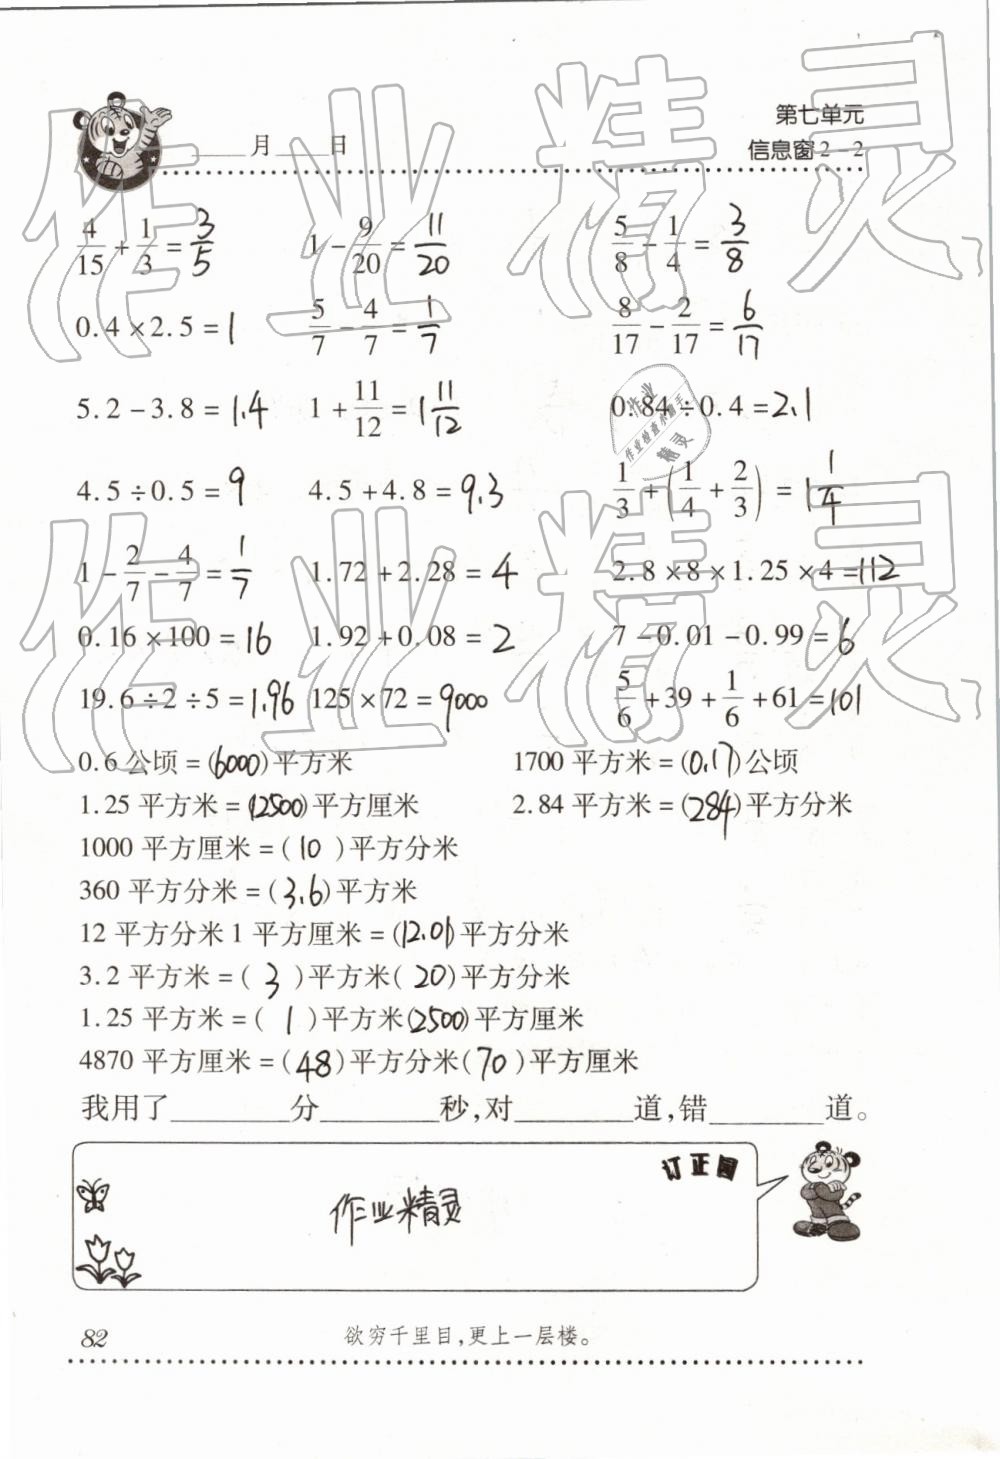 第七单元
____月____日 信息窗2-2
4/15 + 1/3 = 3/5 1 - 9/20 = 11/20 5/8 - 1/4 = 3/8
0.4×2.5=1 5/7 - 4/7 = 1/7 8/17 - 2/17 = 6/17
5.2-3.8=1.4 1 + 11/12 = 1 11/12 0.84÷0.4=2.1
4.5÷0.5=9 4.5+4.8=9.3 1/3 + (1/4 + 2/3) = 1 1/4
1 - 2/7 - 4/7 = 1/7 1.72+2.28=4 2.8×8×1.25×4=112
0.16×100=16 1.92+0.08=2 7-0.01-0.99=6
19.6÷2÷5=1.96 125×72=9000 5/6 +39+ 1/6 +61=101
0.6公顷=(6000)平方米 1700平方米=(0.17)公顷
1.25平方米=(12500)平方厘米 2.84平方米=(284)平方分米
1000平方厘米=(10)平方分米
360平方分米=(3.6)平方米
12平方分米1平方厘米=(12.01)平方分米
3.2平方米=(3)平方米(20)平方分米
1.25平方米=(1)平方米(2500)平方厘米
4870平方厘米=(48)平方分米(70)平方厘米
我用了____分____秒,对____道,错____道。
订正园
作业精灵
82 欲穷千里目,更上一层楼。
作业精灵
作业精灵
作业
作业检查小帮手
精灵